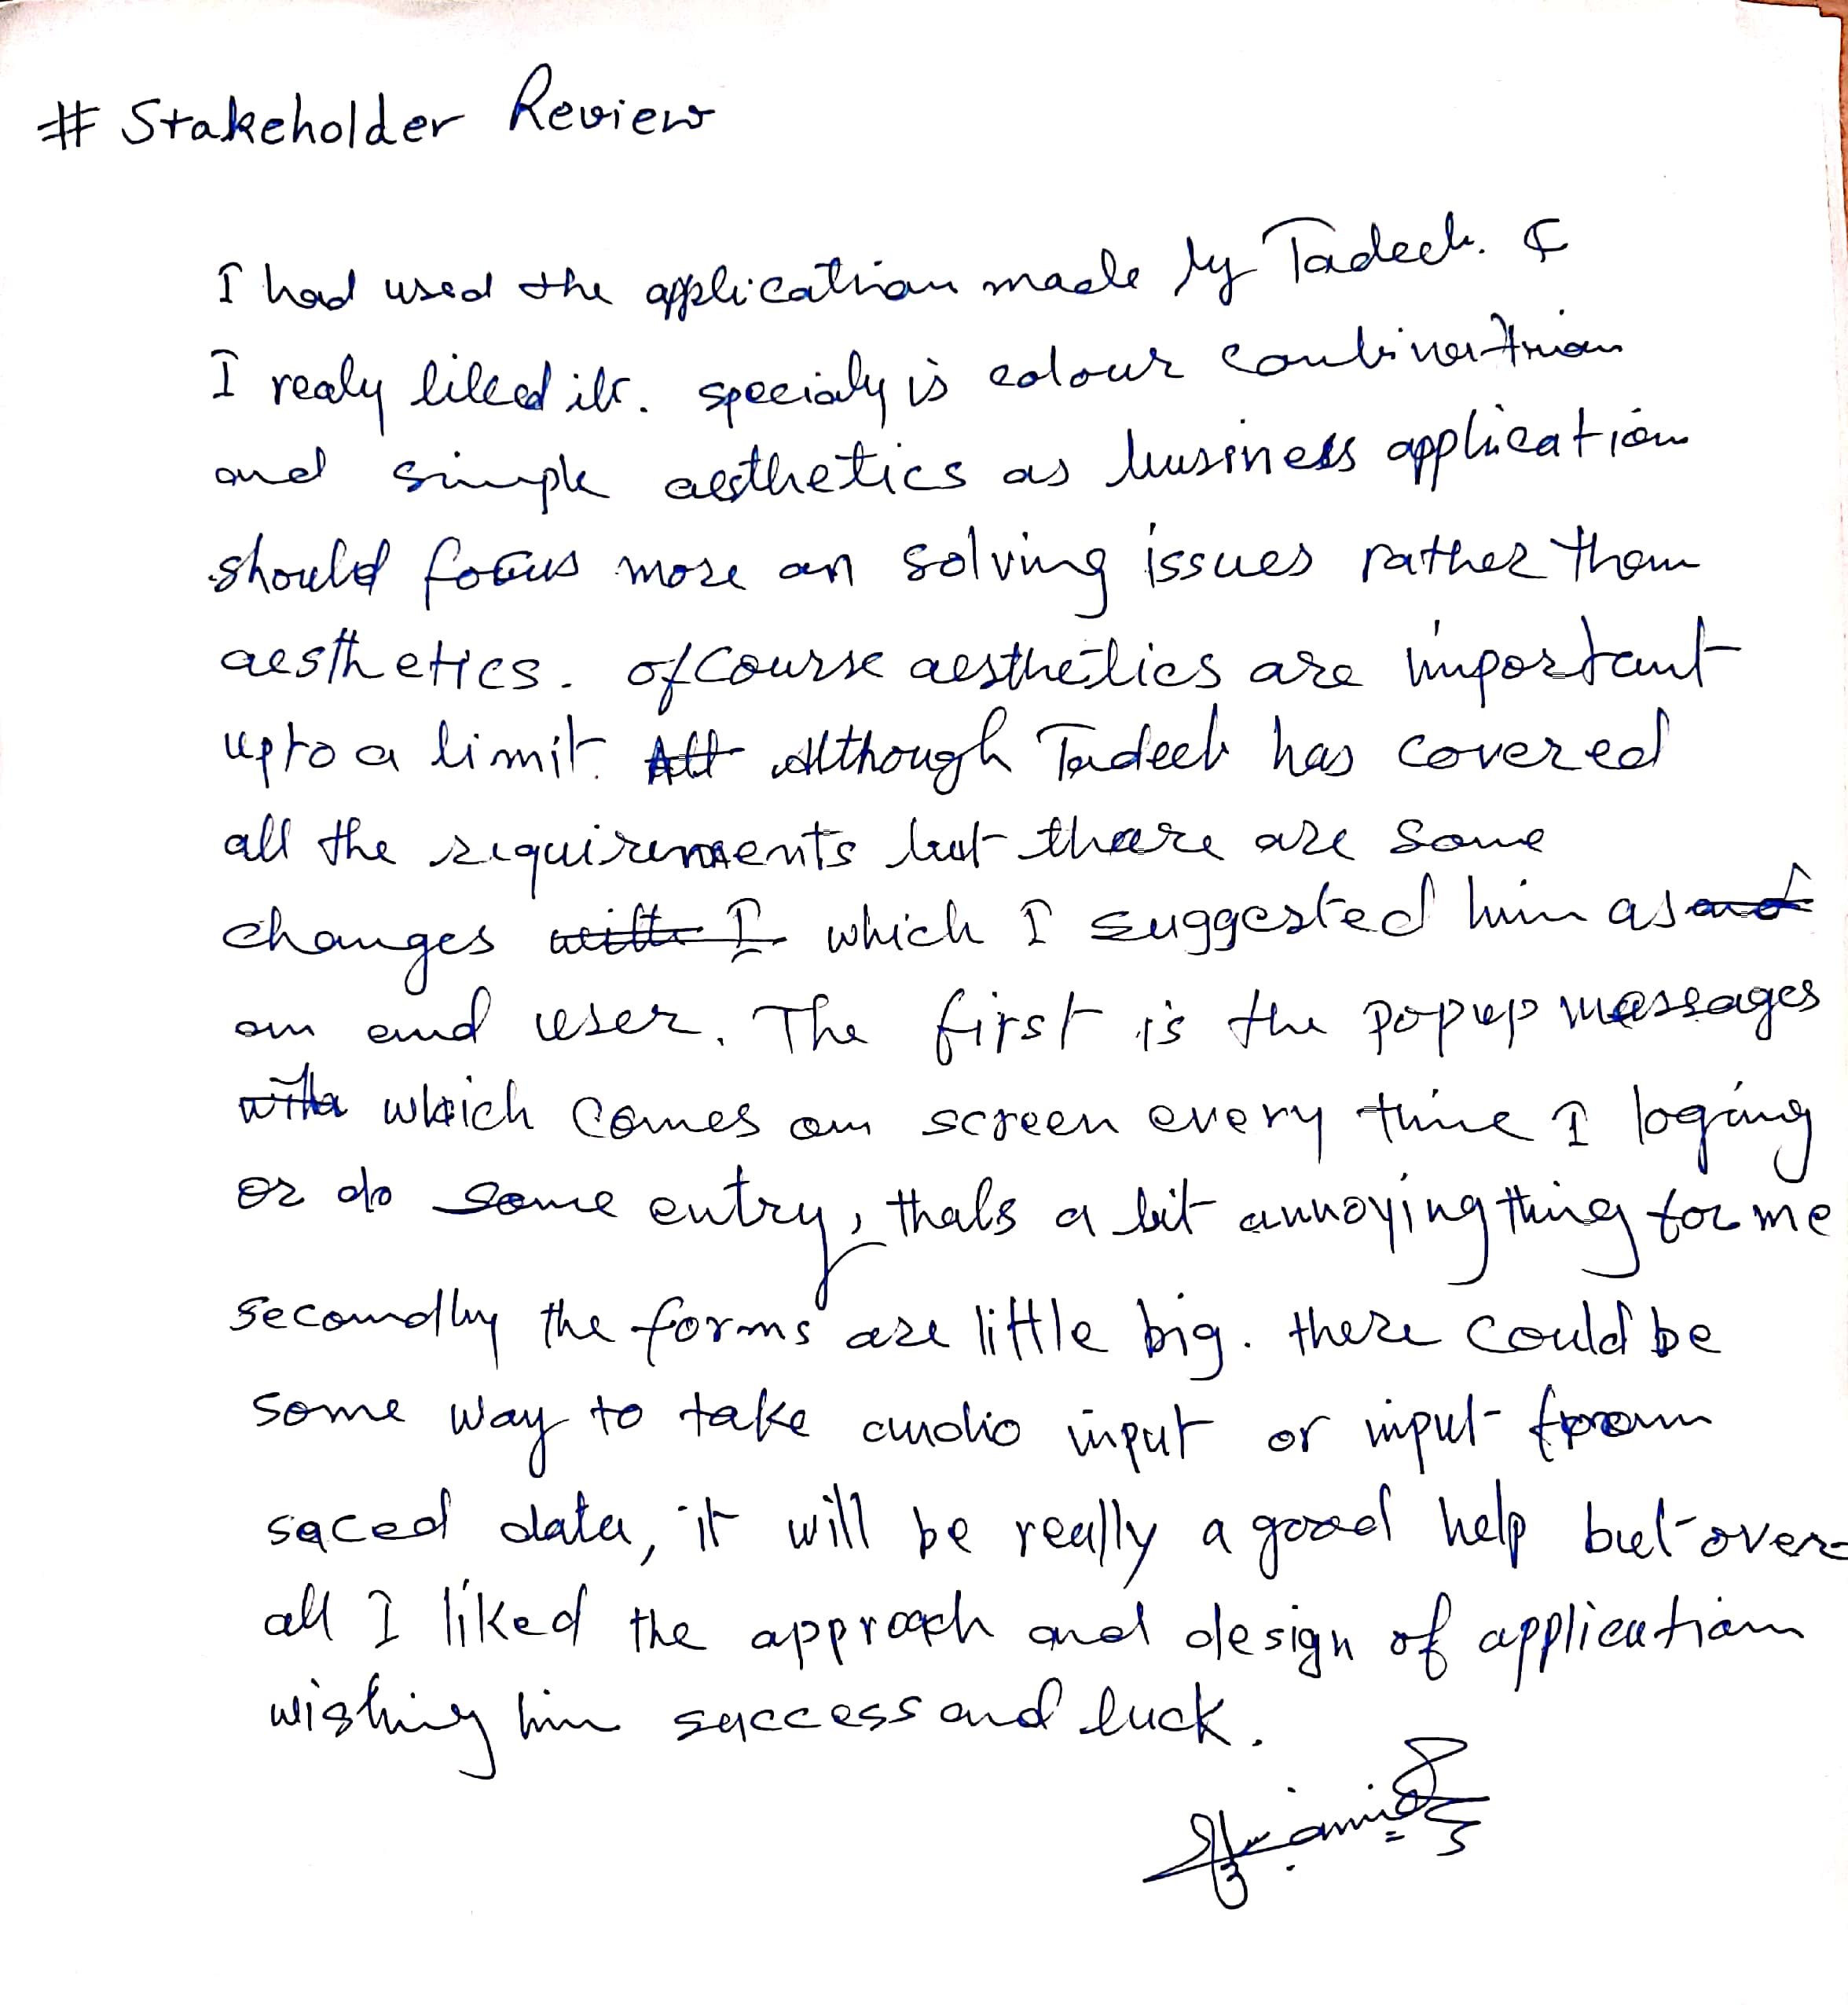 # Stakeholder Review
I had used the application made by Tadeeb. &
I realy liked it. specialy is colour combination
and simple aesthetics as business application
should focus more on solving issues rather than
aesthetics. ofcourse aesthetics are important
upto a limit. Alt Although Tadeeb has covered
all the requirements but there are some
changes with I which I suggested him as and
an end user. The first is the popup messages
with which comes on screen every time I loging
or do some entry, thats a bit annoying thing for me
secondly the forms are little big. there could be
some way to take audio input or input from
saced data, it will be really a good help but over
all I liked the approach and design of application
wishing him success and luck.